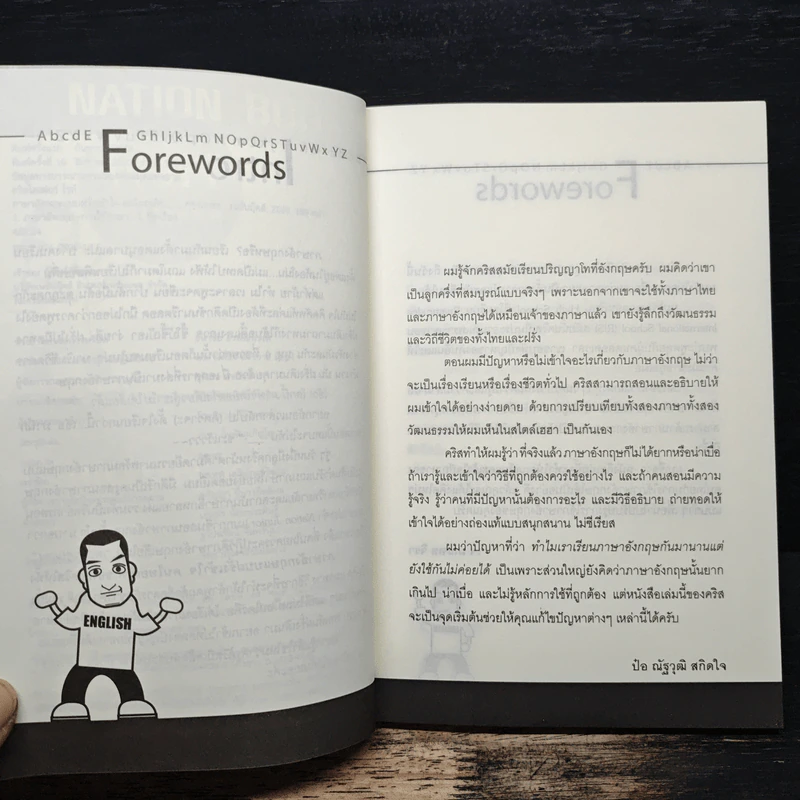 AbcdE GhIjkLm NOpQrSTuvWxYZ
Forewords
ENGLISH
ผมรู้จักคริสสมัยเรียนปริญญาโทที่อังกฤษครับ ผมคิดว่าเขา
เป็นลูกครึ่งที่สมบูรณ์แบบจริงๆ เพราะนอกจากเขาจะใช้ทั้งภาษาไทย
และภาษาอังกฤษได้เหมือนเจ้าของภาษาแล้ว เขายังรู้ลึกถึงวัฒนธรรม
และวิถีชีวิตของทั้งไทยและฝรั่ง
ตอนผมมีปัญหาหรือไม่เข้าใจอะไรเกี่ยวกับภาษาอังกฤษ ไม่ว่า
จะเป็นเรื่องเรียนหรือเรื่องชีวิตทั่วไป คริสสามารถสอนและอธิบายให้
ผมเข้าใจได้อย่างง่ายดาย ด้วยการเปรียบเทียบทั้งสองภาษาทั้งสอง
วัฒนธรรมให้ผมเห็นในสไตล์เฮฮา เป็นกันเอง
คริสทำให้ผมรู้ว่า ที่จริงแล้ว ภาษาอังกฤษก็ไม่ได้ยากหรือน่าเบื่อ
ถ้าเรารู้และเข้าใจว่าวิธีที่ถูกต้องควรใช้อย่างไร และถ้าคนสอนมีความ
รู้จริง รู้ว่าคนที่มีปัญหานั้นต้องการอะไร และมีวิธีอธิบาย ถ่ายทอดให้
เข้าใจได้อย่างถ่องแท้แบบสนุกสนาน ไม่ซีเรียส
ผมว่าปัญหาที่ว่า ทำไมเราเรียนภาษาอังกฤษกันมานานแต่
ยังใช้กันไม่ค่อยได้ เป็นเพราะส่วนใหญ่ยังคิดว่าภาษาอังกฤษนั้นยาก
เกินไป น่าเบื่อ และไม่รู้หลักการใช้ที่ถูกต้อง แต่หนังสือเล่มนี้ของคริส
จะเป็นจุดเริ่มต้นช่วยให้คุณแก้ไขปัญหาต่างๆ เหล่านี้ได้ครับ
ป๋อ ณัฐวุฒิ สกิดใจ